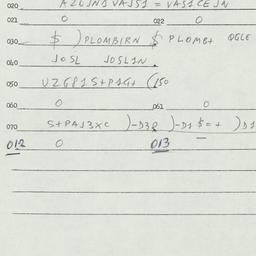 020 AZLJNS VAJSI = VASICEJN
021 0 022 0
030 $ ) PLOMBIRN $ PLOMB+ OGLE
040 JOSL JOSLIN.
050 UZGPIS+PIG+ (150
060 0 061 0
070 S+PAJ3XC )-D38 )-D1 $=+ )D1
012 0 013